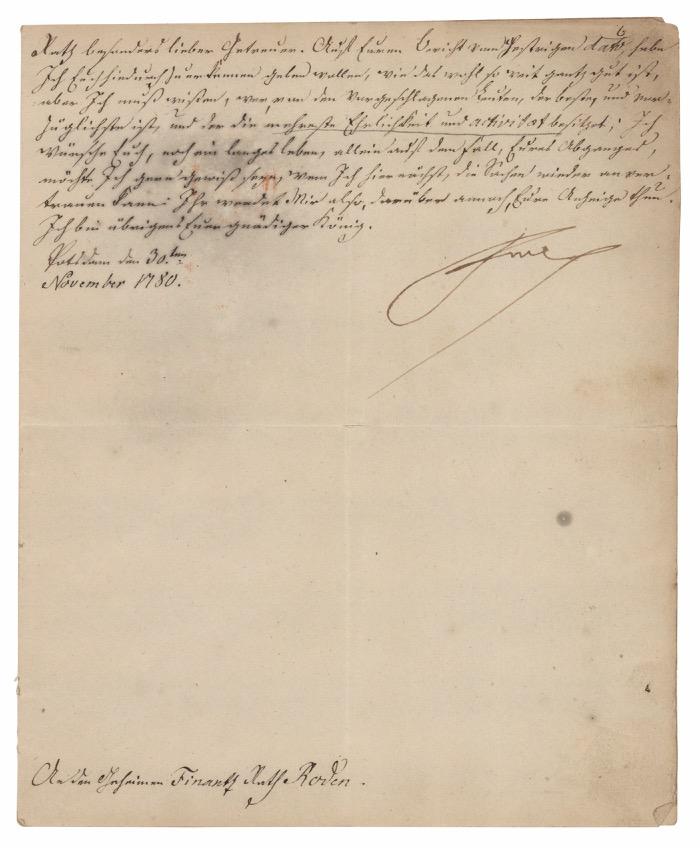 Rath besonders lieber Getreuer. Auf Euren Bericht vom gestrigen dato, habe
Ich Euch hiedurch zu erkennen geben wollen, wie das wohl so weit gantz gut ist,
aber Ich muß wißen, wer von den vorgeschlagenen Leuten, der beste, und vor-
züglichste ist, und der die mehreste Ehrlichkeit und activitæt besitzet; Ich
wünsche Euch, noch ein langes Leben, allein auf den Fall, Eures Abganges,
möchte Ich gern gewiß seyn, wem Ich hiernächst, die Sachen wieder anver-
trauen kann: Ihr werdet Mir also, darüber annoch, Eure Anzeige thun.
Ich bin übrigens Euer gnädiger König.
Potsdam den 30.ten
November 1780.
An den Geheimen Finantz Rath Roden.